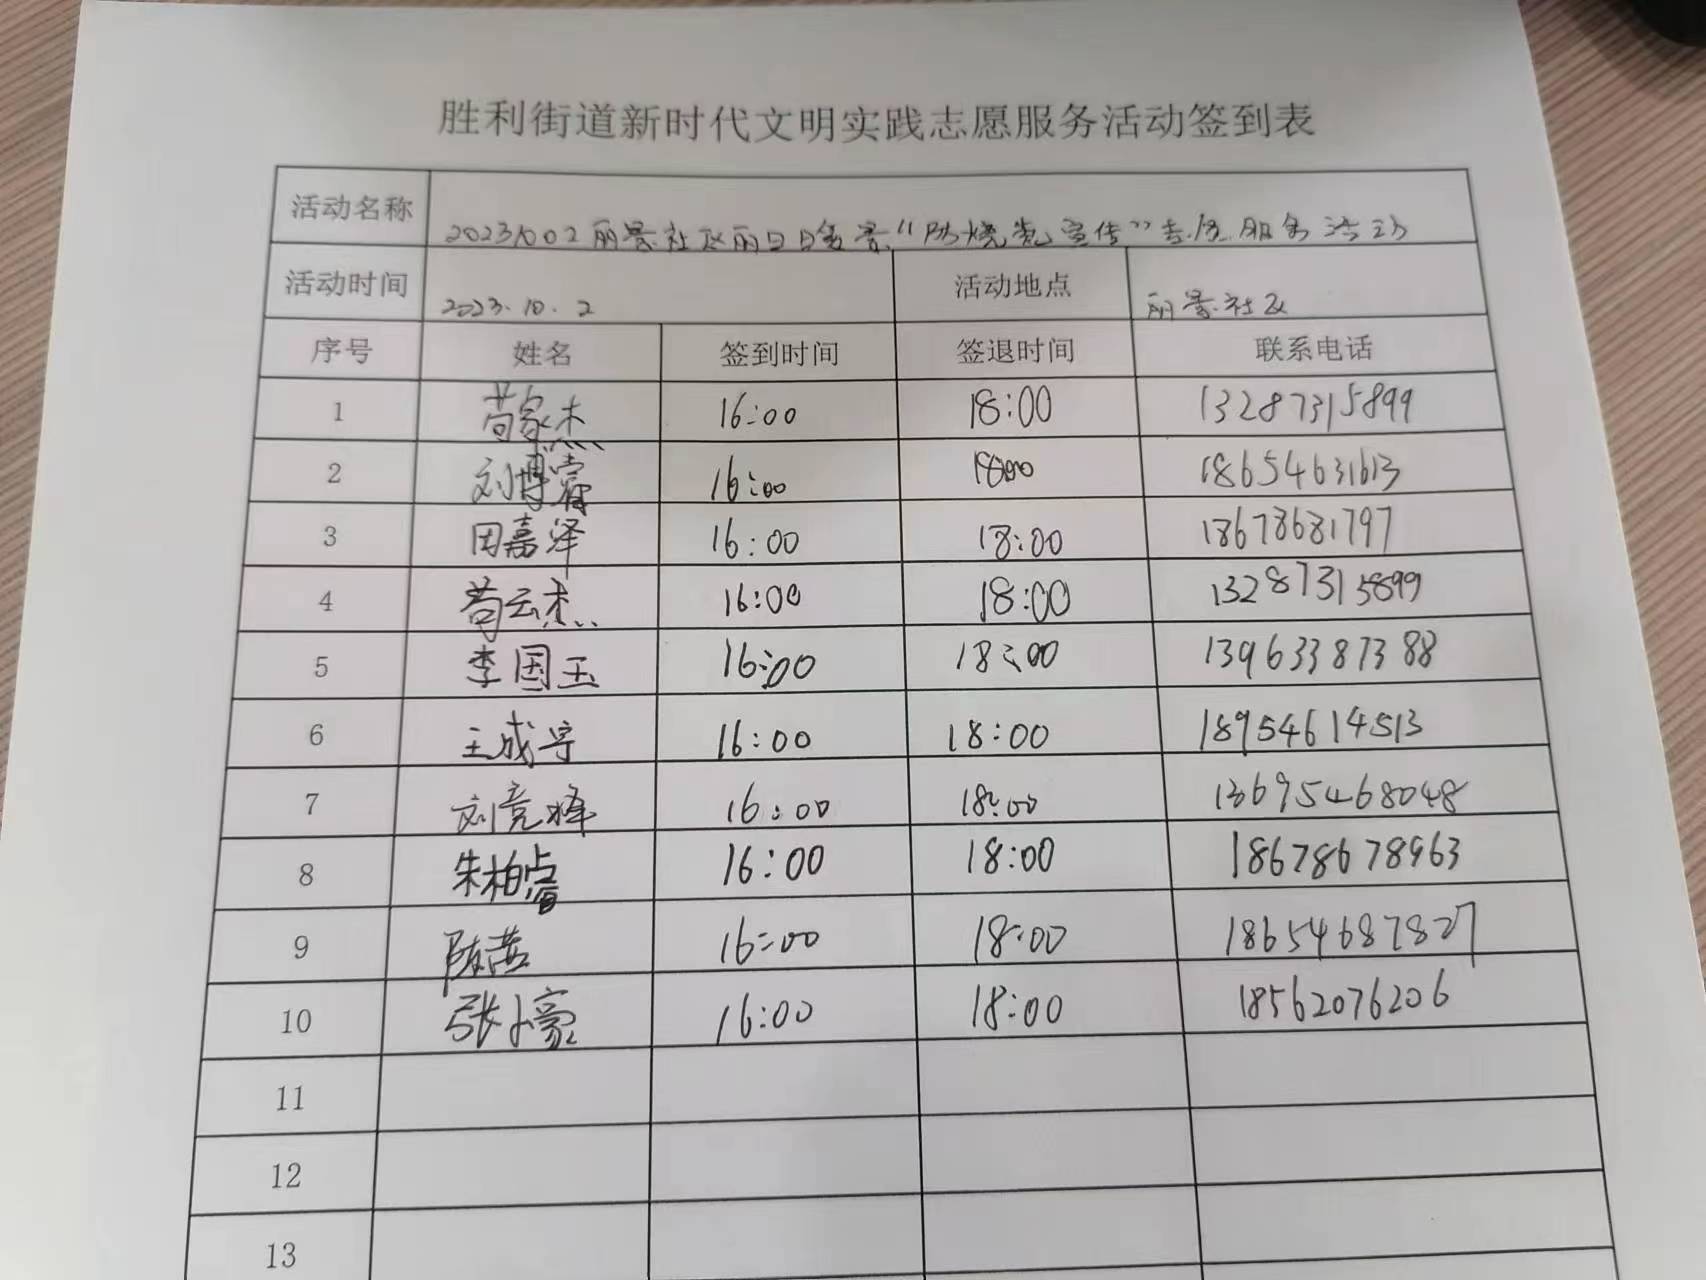 胜利街道新时代文明实践志愿服务活动签到表
活动名称 20231002丽景社区丽日日多彩“防烧荒宣传”志愿服务活动
活动时间 2023.10.2 活动地点 丽景社区
序号 姓名 签到时间 签退时间 联系电话
1 苟家杰 16:00 18:00 13287315899
2 刘博睿 16:00 18:00 18654631613
3 田嘉泽 16:00 18:00 18678681797
4 苟云杰 16:00 18:00 13287315899
5 李国玉 16:00 18:00 13963387388
6 王成宇 16:00 18:00 18954614513
7 刘竞择 16:00 18:00 13695468048
8 朱柏睿 16:00 18:00 18678678963
9 陈茜 16:00 18:00 18654687827
10 张小豪 16:00 18:00 18562076206
11
12
13